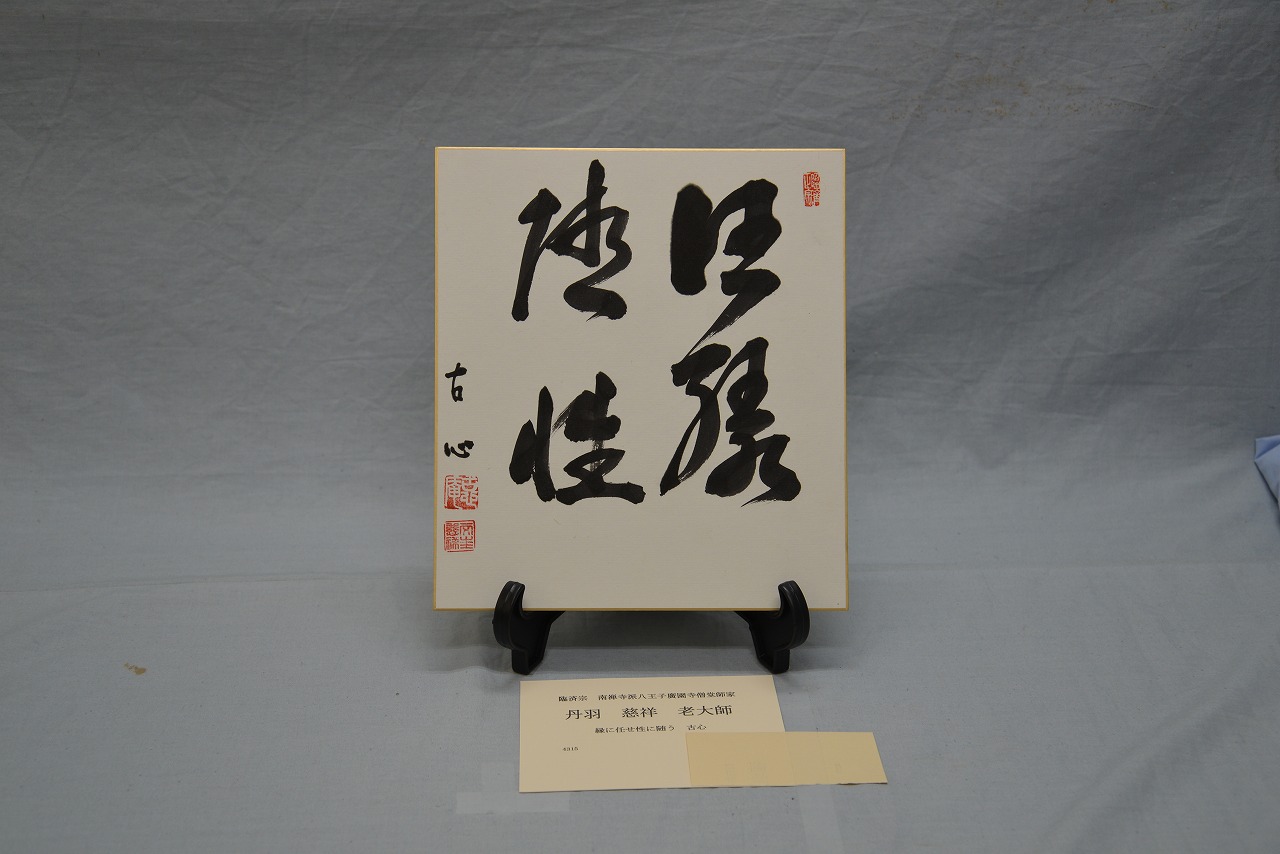 任縁
随性
古心
臨済宗　南禅寺派八王子廣園寺僧堂師家
丹羽　慈祥　老大師
縁に任せ性に随う　古心
4315